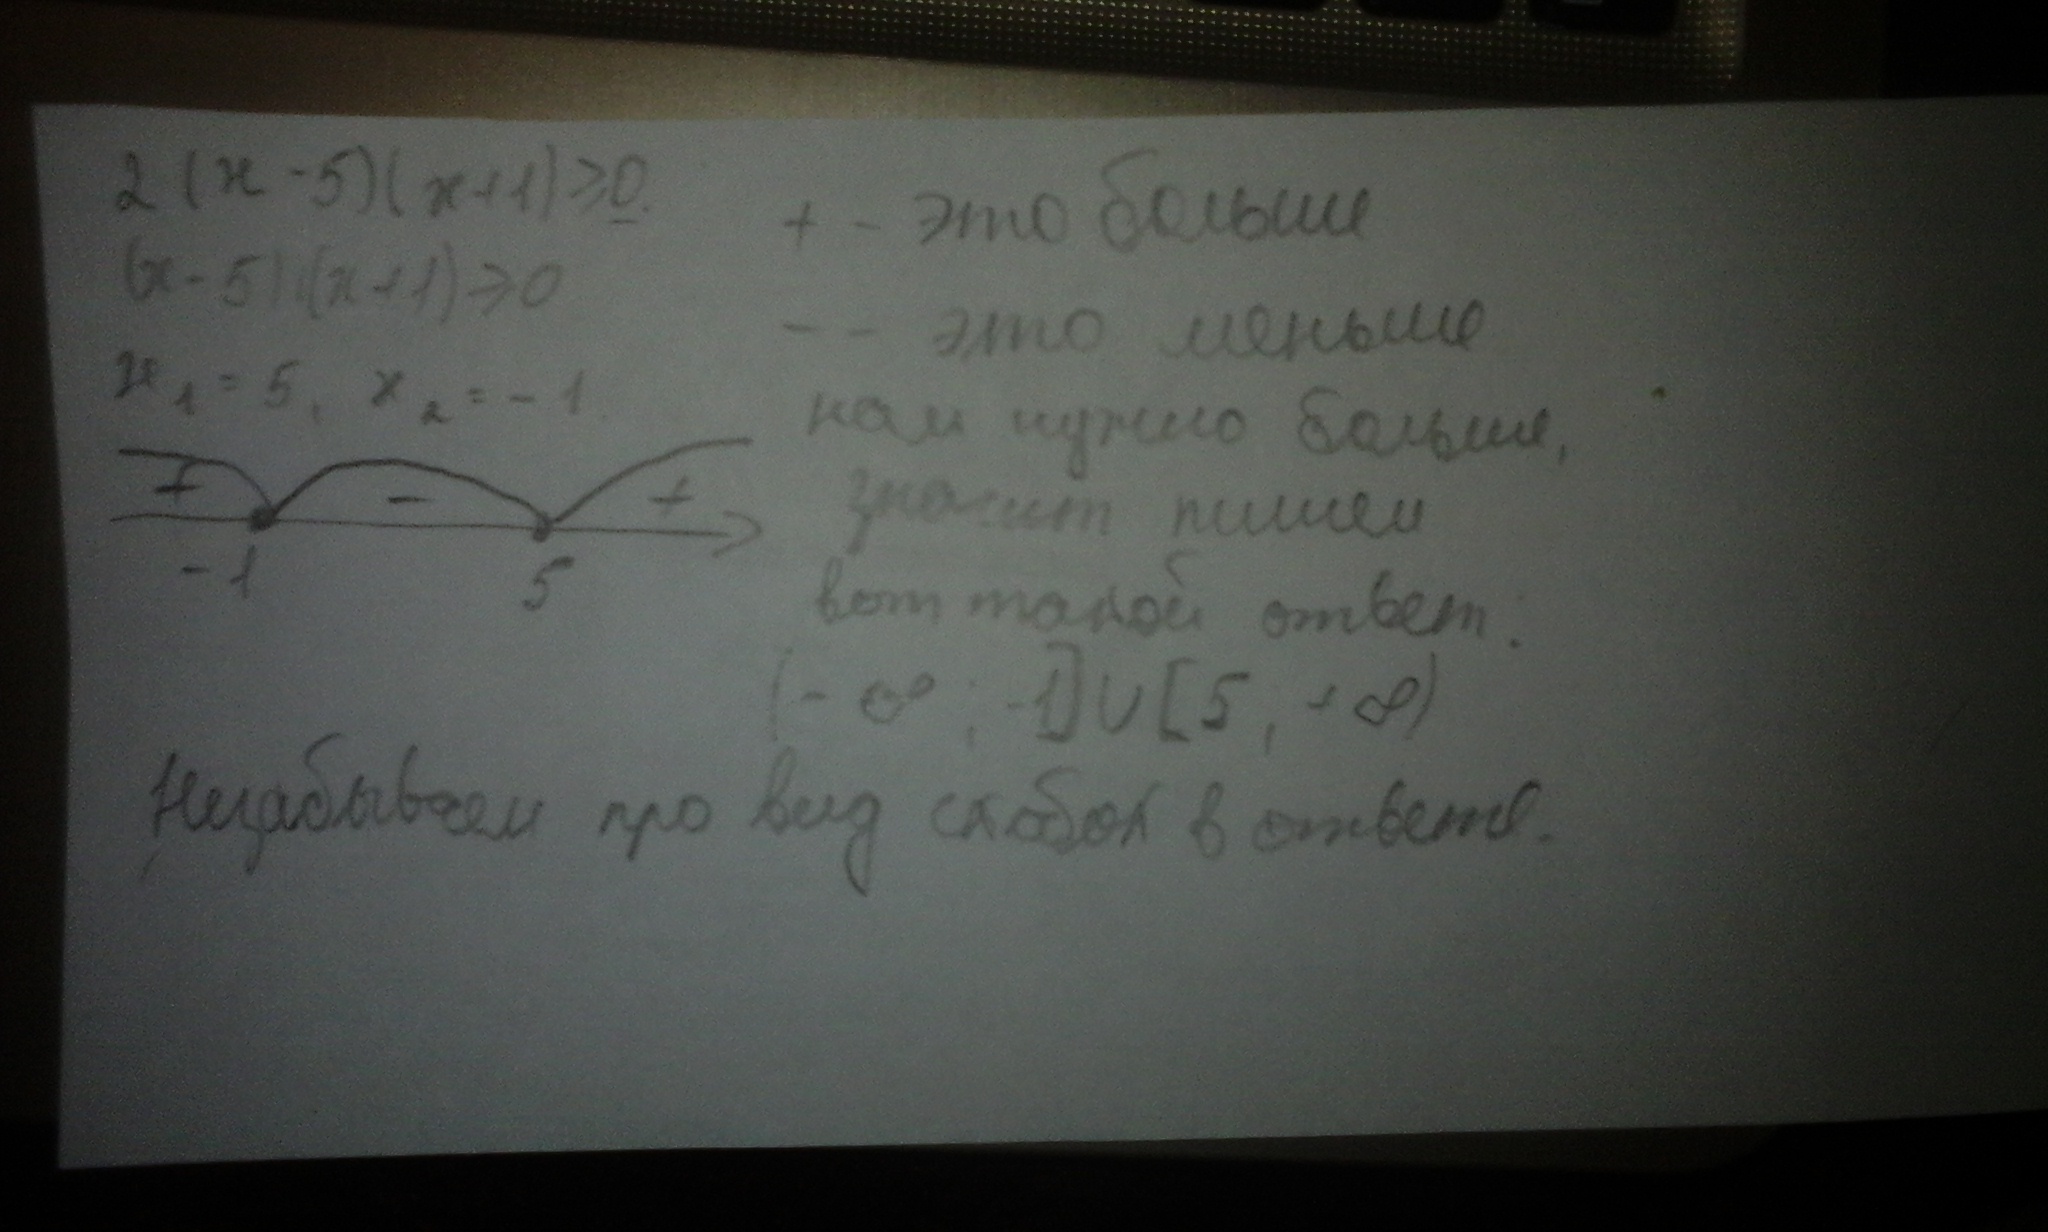 2(x-5)(x+1)≥0.
(x-5)(x+1)≥0
x₁=5, x₂=-1.
+ - +
-1 5
+ - это больше
- - это меньше
нам нужно больше,
значит пишем
вот такой ответ:
(-∞; -1]∪[5; +∞)
Незабываем про вид скобок в ответе.